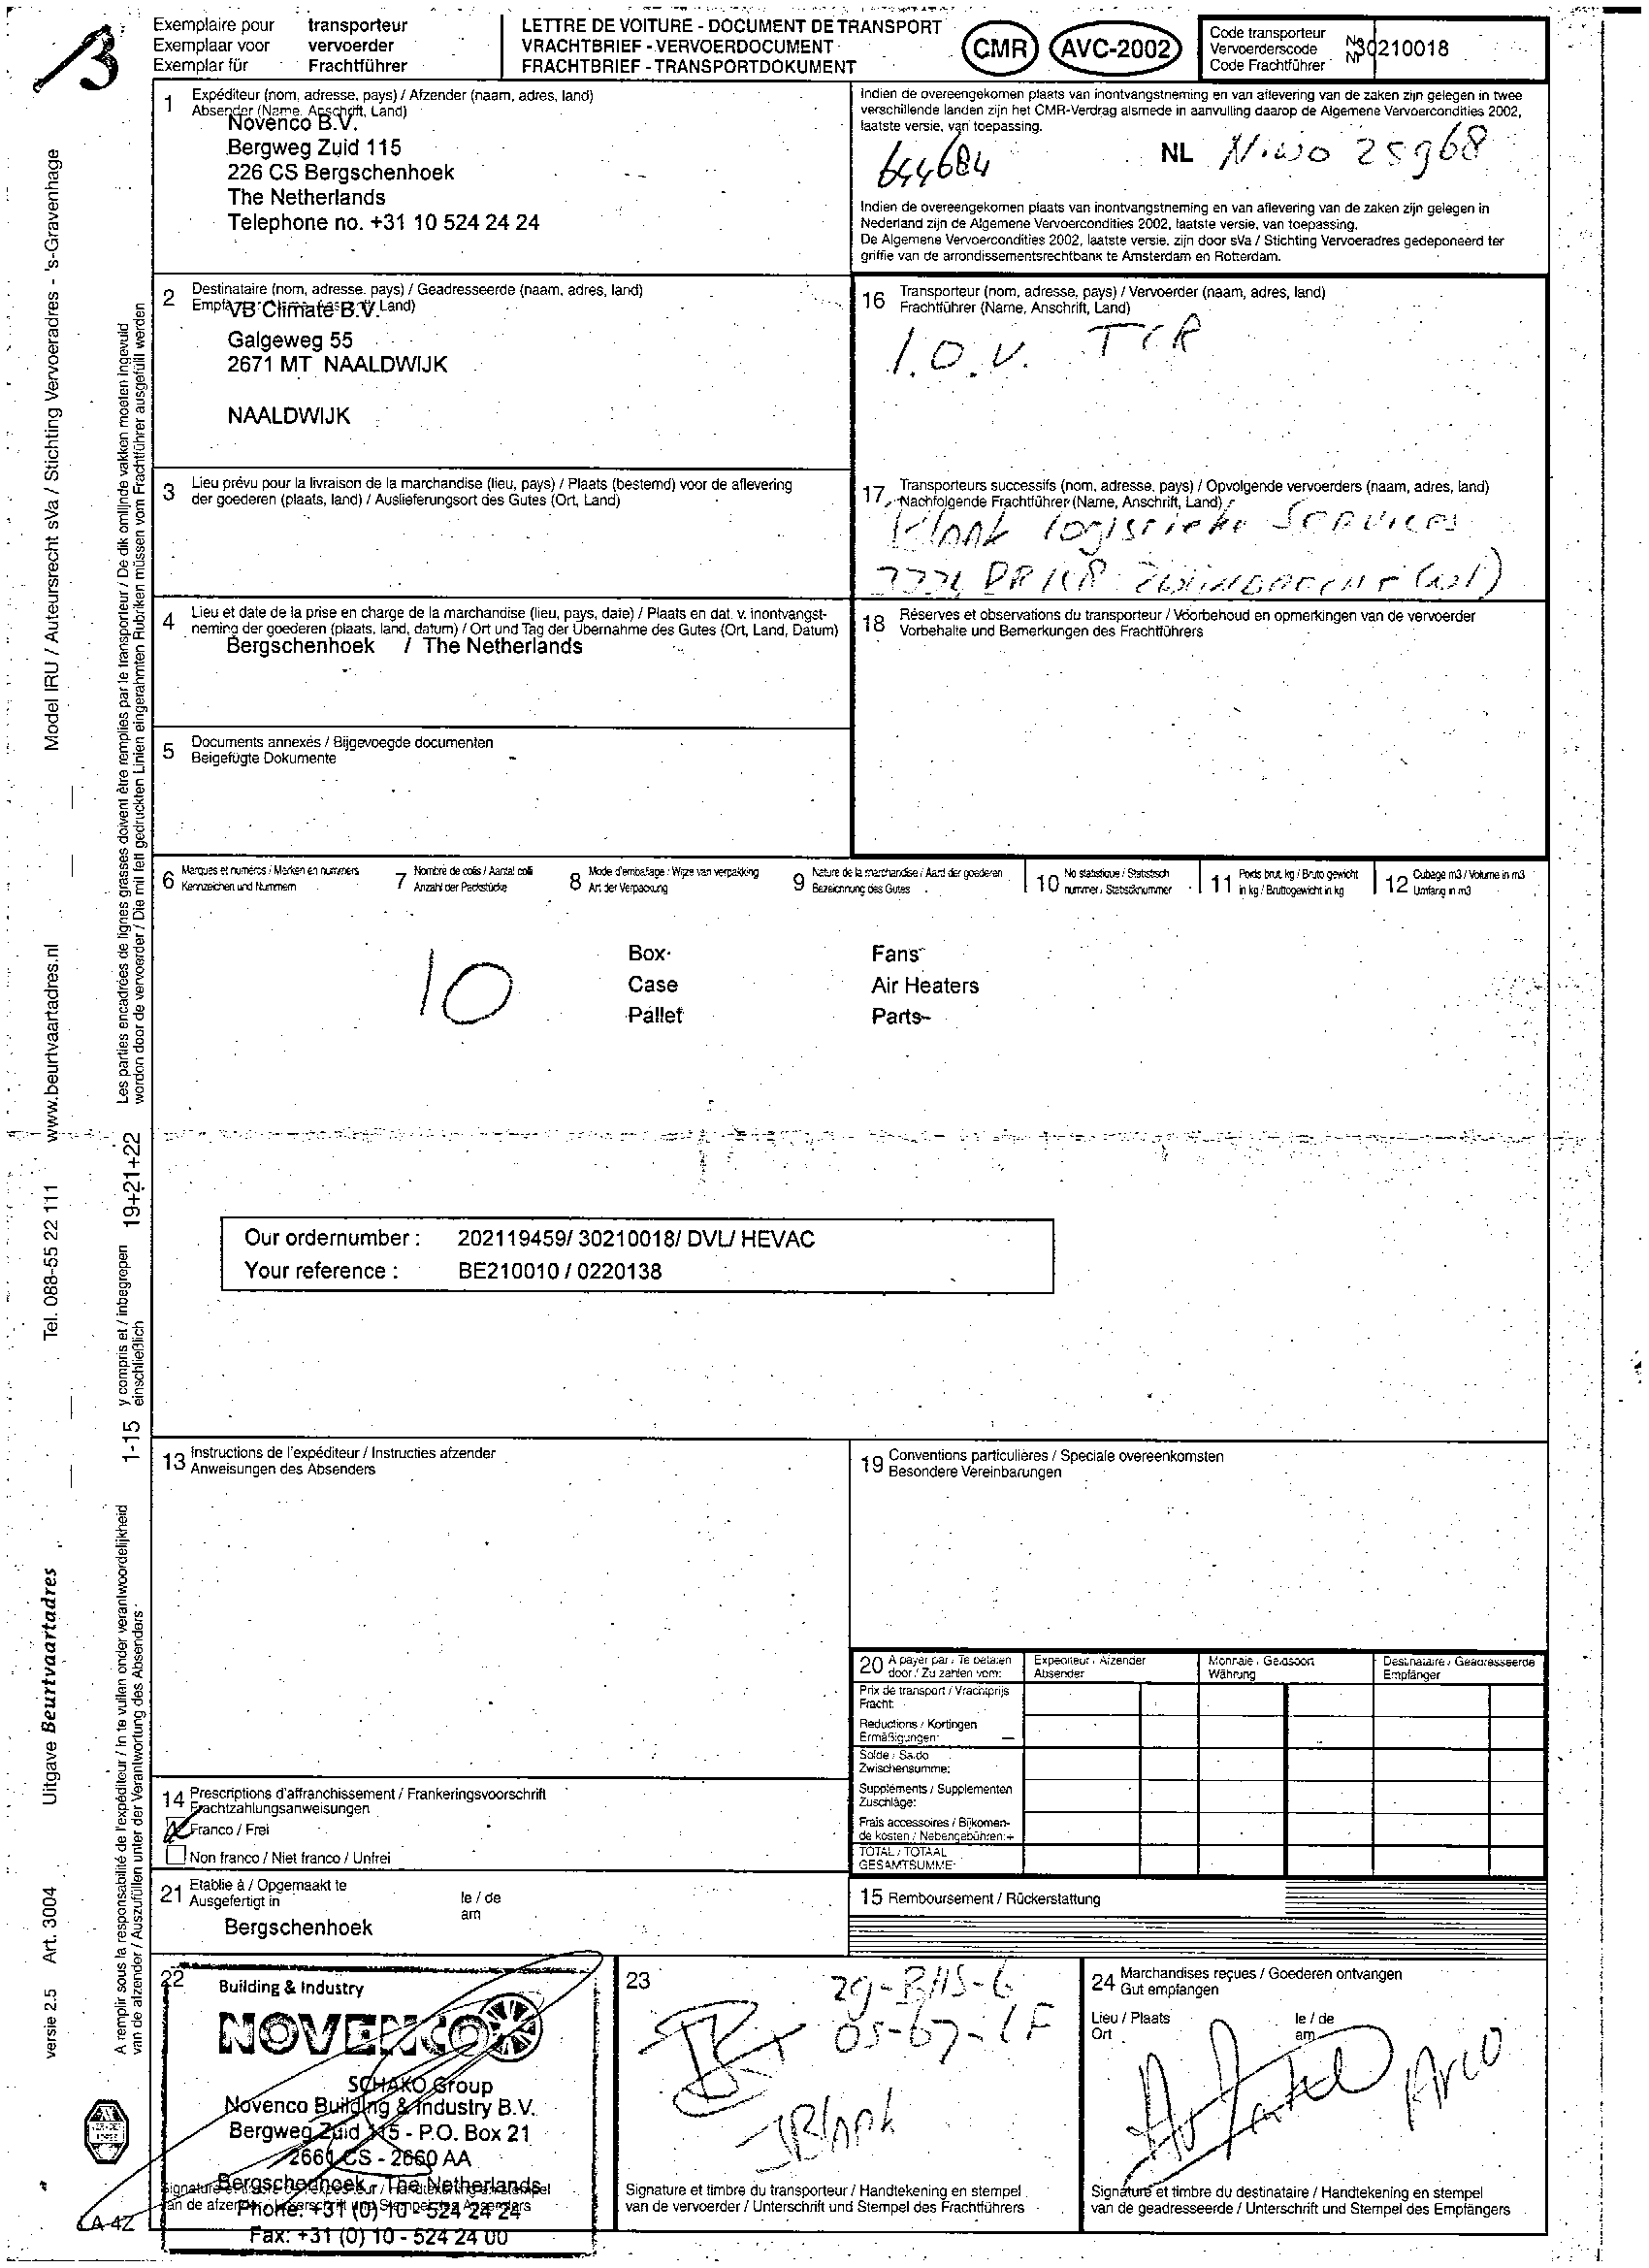 Exemplaire pour transporteur
Exemplaar voor vervoerder
Exemplar für Frachtführer
LETTRE DE VOITURE - DOCUMENT DE TRANSPORT
VRACHTBRIEF - VERVOERDOCUMENT
FRACHTBRIEF - TRANSPORTDOKUMENT
CMR AVC-2002
Code transporteur
Vervoerderscode
Code Frachtführer
No
Nr
30210018
1 Expéditeur (nom, adresse, pays) / Afzender (naam, adres, land)
Absender (Name, Anschrift, Land)
Novenco B.V.
Bergweg Zuid 115
226 CS Bergschenhoek
The Netherlands
Telephone no. +31 10 524 24 24
Indien de overeengekomen plaats van inontvangstneming en van aflevering van de zaken zijn gelegen in twee
verschillende landen zijn het CMR-Verdrag alsmede in aanvulling daarop de Algemene Vervoercondities 2002,
laatste versie, van toepassing.
644684
NL Niwo 25968
Indien de overeengekomen plaats van inontvangstneming en van aflevering van de zaken zijn gelegen in
Nederland zijn de Algemene Vervoercondities 2002, laatste versie, van toepassing.
De Algemene Vervoercondities 2002, laatste versie, zijn door sVa / Stichting Vervoeradres gedeponeerd ter
griffie van de arrondissementsrechtbank te Amsterdam en Rotterdam.
2 Destinataire (nom, adresse, pays) / Geadresseerde (naam, adres, land)
VB Climate B.V. Land)
Galgeweg 55
2671 MT NAALDWIJK
NAALDWIJK
16 Transporteur (nom, adresse, pays) / Vervoerder (naam, adres, land)
Frachtführer (Name, Anschrift, Land)
I.O.V. TCR
3 Lieu prévu pour la livraison de la marchandise (lieu, pays) / Plaats (bestemd) voor de aflevering
der goederen (plaats, land) / Auslieferungsort des Gutes (Ort, Land)
17 Transporteurs successifs (nom, adresse, pays) / Opvolgende vervoerders (naam, adres, land)
Nachfolgende Frachtführer (Name, Anschrift, Land)
logistieke Services
4 Lieu et date de la prise en charge de la marchandise (lieu, pays, date) / Plaats en dat. v. inontvangst-
neming der goederen (plaats, land, datum) / Ort und Tag der Übernahme des Gutes (Ort, Land, Datum)
Bergschenhoek / The Netherlands
18 Réserves et observations du transporteur / Voorbehoud en opmerkingen van de vervoerder
Vorbehalte und Bemerkungen des Frachtführers
5 Documents annexés / Bijgevoegde documenten
Beigefügte Dokumente
6 Marques et numéros / Merken en nummers
Kennzeichen und Nummern
7 Nombre de colis / Aantal colli
Anzahl der Packstücke
8 Mode d'emballage / Wijze van verpakking
Art der Verpackung
9 Nature de la marchandise / Aard der goederen
Bezeichnung des Gutes
10 No statistique / Statistisch
nummer / Statistiknummer
11 Poids brut, kg / Bruto gewicht
in kg / Bruttogewicht in kg
12 Cubage m3 / Volume in m3
Umfang in m3
10
Box Fans
Case Air Heaters
Pallet Parts
Our ordernumber : 202119459/ 30210018/ DVL/ HEVAC
Your reference : BE210010 / 0220138
13 Instructions de l'expéditeur / Instructies afzender
Anweisungen des Absenders
19 Conventions particulières / Speciale overeenkomsten
Besondere Vereinbarungen
20 A payer par / Te betalen
door / Zu zahlen vom:
Expéditeur / Afzender
Absender
Monnaie / Geldsoort
Währung
Destinataire / Geadresseerde
Empfänger
Prix de transport / Vrachtprijs
Fracht:
Reductions / Kortingen
Ermäßigungen: –
Solde / Saldo
Zwischensumme:
Suppléments / Supplementen
Zuschläge:
Frais accessoires / Bijkomen-
de kosten / Nebengebühren: +
TOTAL / TOTAAL
GESAMTSUMME:
14 Prescriptions d'affranchissement / Frankeringsvoorschrift
Frachtzahlungsanweisungen
Franco / Frei
Non franco / Niet franco / Unfrei
21 Etablie à / Opgemaakt te
Ausgefertigt in
le / de
am
Bergschenhoek
15 Remboursement / Rückerstattung
22
Building & Industry
NOVENCO
SCHAKO Group
Novenco Building & Industry B.V.
Bergweg Zuid 115 - P.O. Box 21
2661 CS - 2660 AA
Bergschenhoek - The Netherlands
Phone: +31 (0) 10 - 524 24 24
Fax: +31 (0) 10 - 524 24 00
23
Signature et timbre du transporteur / Handtekening en stempel
van de vervoerder / Unterschrift und Stempel des Frachtführers
24 Marchandises reçues / Goederen ontvangen
Gut empfangen
Lieu / Plaats
Ort
le / de
am
Arco
Signature et timbre du destinataire / Handtekening en stempel
van de geadresseerde / Unterschrift und Stempel des Empfängers
Model IRU / Auteursrecht sVa / Stichting Vervoeradres - 's-Gravenhage
www.beurtvaartadres.nl
Tel. 088-55 22 111
Uitgave Beurtvaartadres
Art. 3004
versie 2.5
Les parties encadrées de lignes grasses doivent être remplies par le transporteur / De dik omlijnde vakken moeten ingevuld
worden door de vervoerder / Die mit fett gedruckten Linien eingerahmten Rubriken müssen vom Frachtführer ausgefüllt werden
19+21+22
y compris et / inbegrepen
einschließlich
1-15
A remplir sous la responsabilité de l'expéditeur / In te vullen onder verantwoordelijkheid
van de afzender / Auszufüllen unter der Verantwortung des Absenders